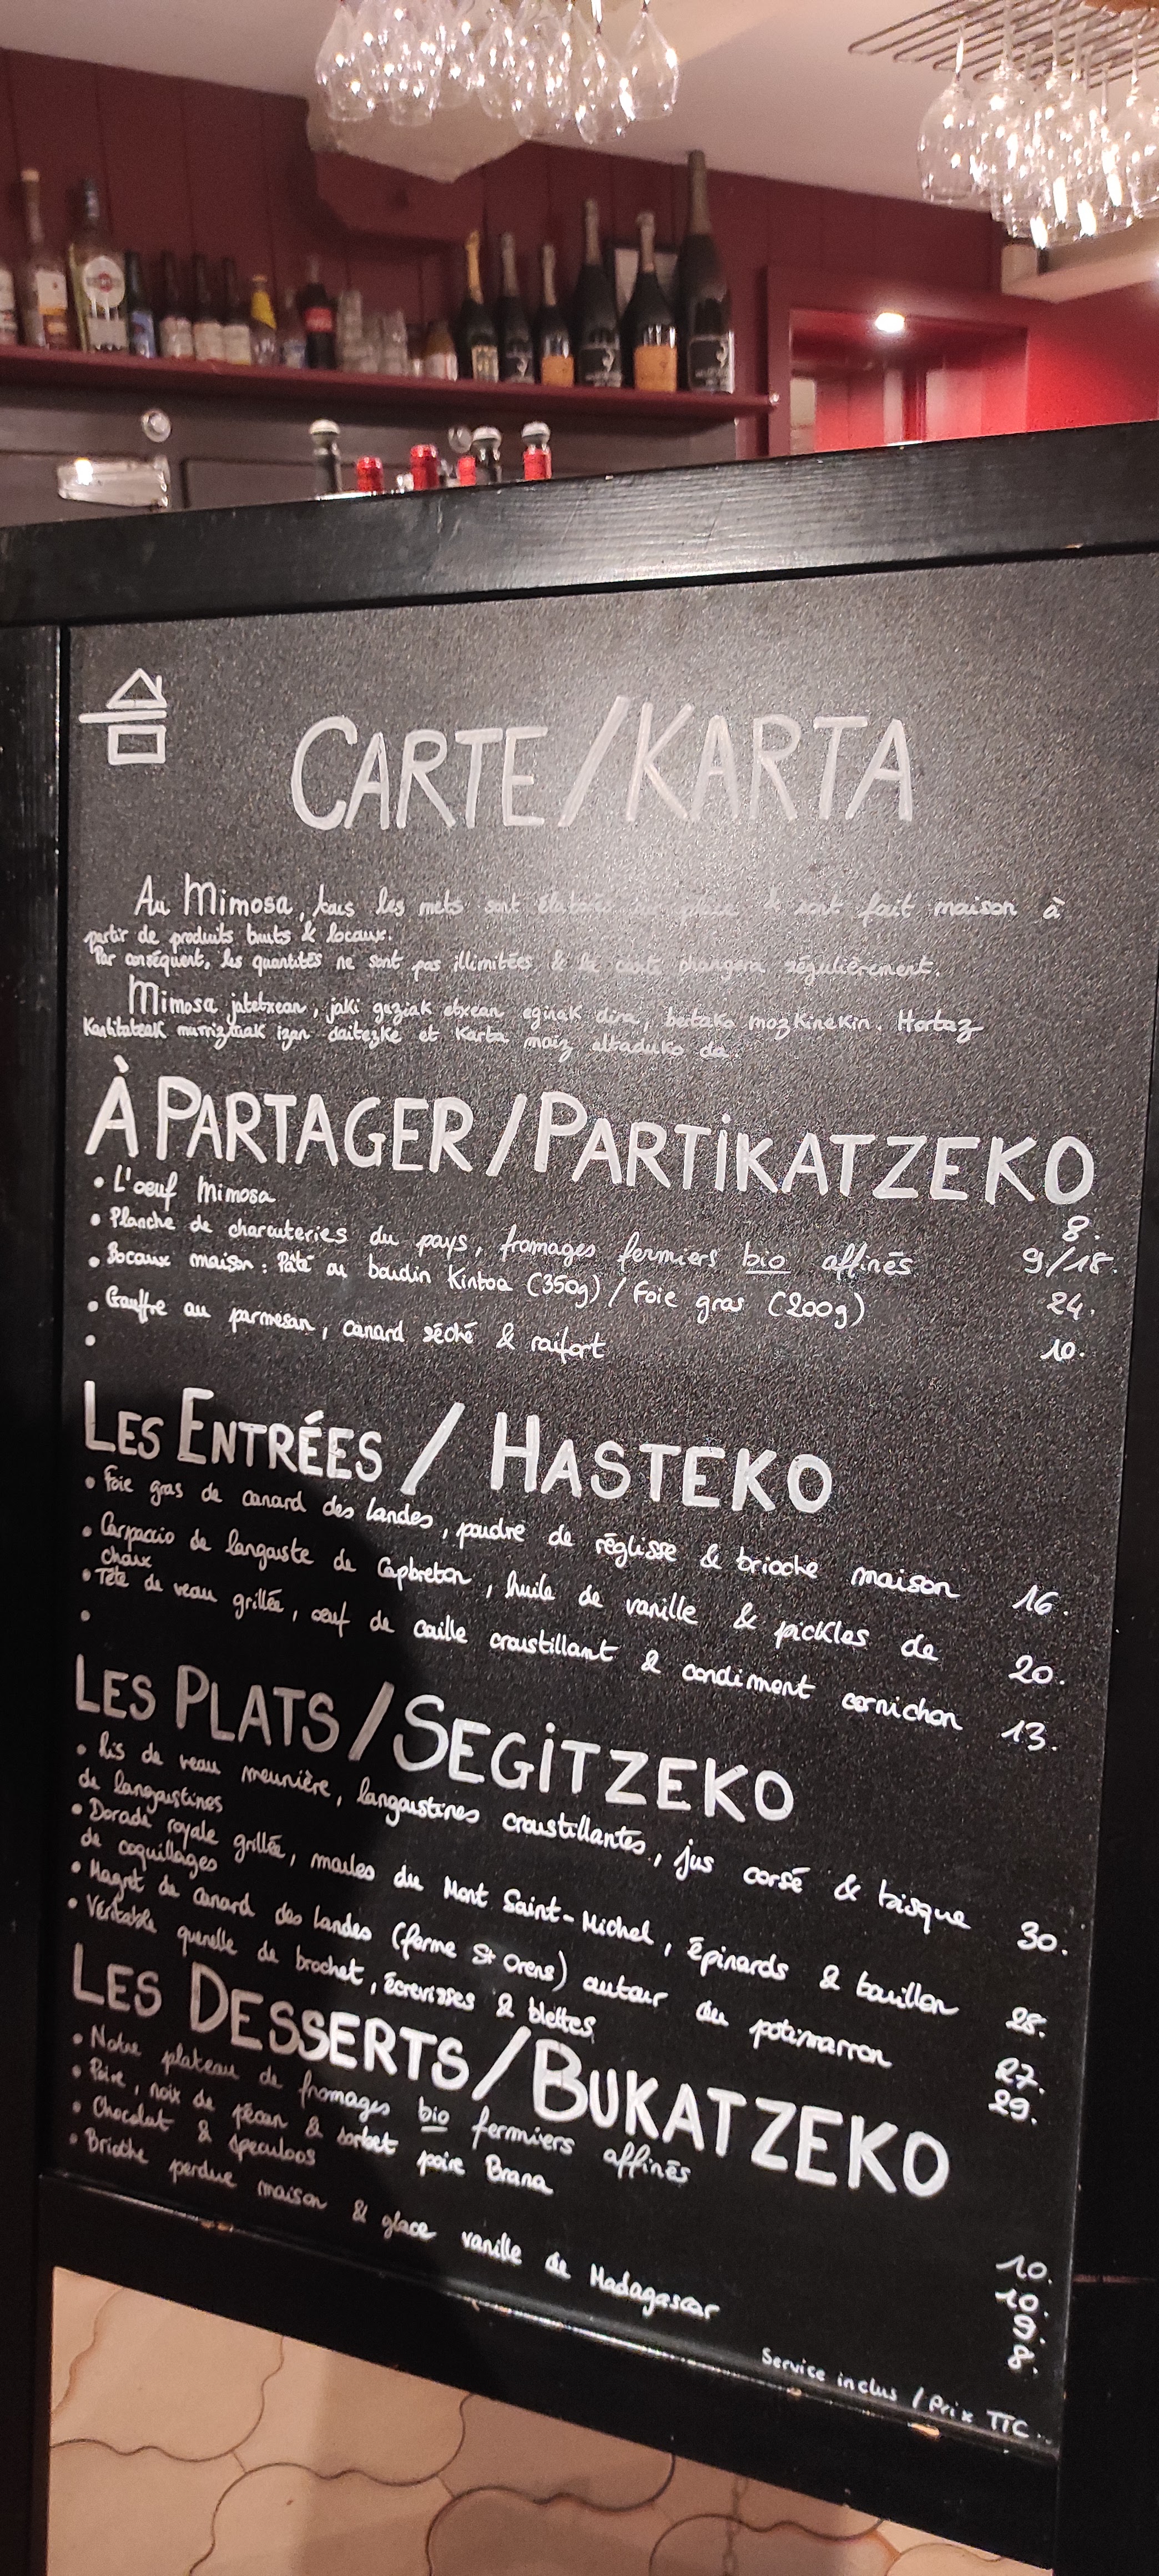 CARTE/KARTA
Au Mimosa, tous les mets sont élaborés sur place & sont fait maison à
partir de produits bruts & locaux.
Par conséquent, les quantités ne sont pas illimitées & la carte changera régulièrement.
Mimosa jatetxean, jaki guziak etxean eginak dira, bertako mozkinekin. Hortaz
Kantitateak murriztuak izan daitezke et Karta maiz aldatuko da.
À PARTAGER/PARTIKATZEKO
• L'oeuf Mimosa 8.
• Planche de charcuteries du pays, fromages fermiers bio affinés 9/18.
• Bocaux maison: Pâté au boudin Kintoa (350g) / Foie gras (200g) 24.
• Gauffre au parmesan, canard séché & raifort 10.
•
LES ENTRÉES / HASTEKO
• Foie gras de canard des landes, poudre de réglisse & brioche maison 16.
• Carpaccio de langouste de Capbreton, huile de vanille & pickles de 20.
choux
• Tête de veau grillée, oeuf de caille croustillant & condiment cornichon 13.
•
LES PLATS/SEGITZEKO
• Ris de veau meunière, langoustines croustillantes, jus corsé & bisque 30.
de langoustines
• Dorade royale grillée, moules du Mont Saint-Michel, épinards & bouillon 28.
de coquillages
• Magret de Canard des landes (ferme St Orens) autour du potimarron 27.
• Véritable quenelle de brochet, écrevisses & blettes 29.
LES DESSERTS/BUKATZEKO
• Notre plateau de fromages bio fermiers affinés 10.
• Poire, noix de pécan & sorbet poire Brana 10.
• Chocolat & speculoos 9.
• Brioche perdue maison & glace vanille de Madagascar 8.
Service inclus / Prix TTC.